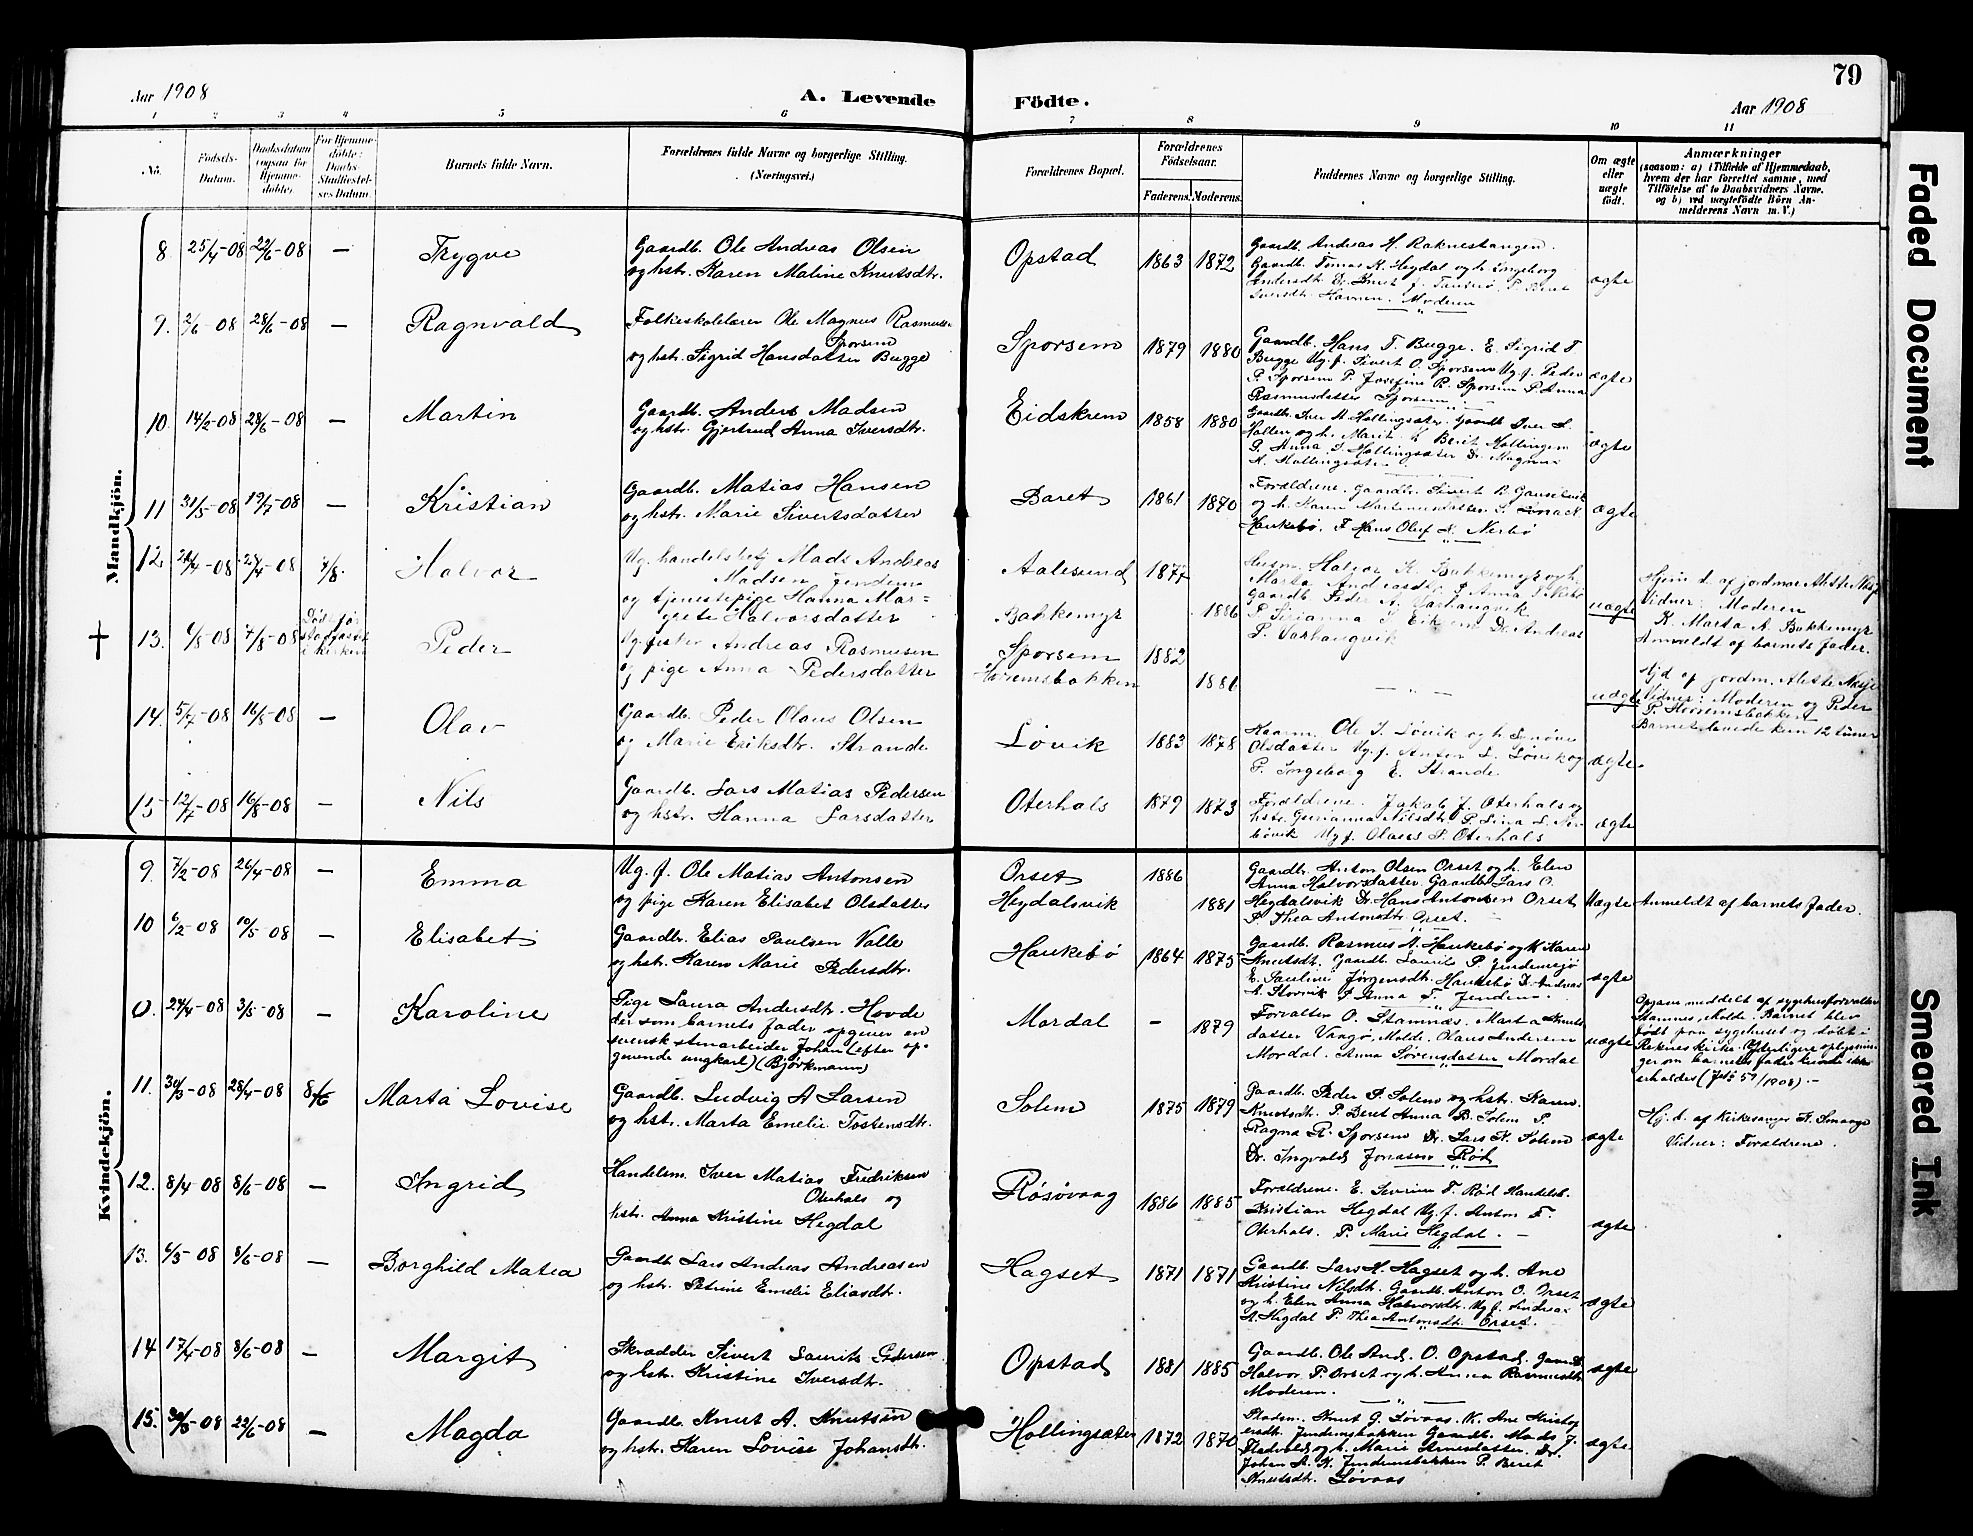 79
Aar 1908
A. Levende Födte.
Aar 1908
1 2 3 4 5 6 7 8 9 10 11
No.
Födsels-Datum.
Daabsdatum (ogsaa for Hjemmedöbte).
For Hjemmedöbte: Daabs-Stadfæstelses Datum.
Barnets fulde Navn.
Forældrenes fulde Navne og borgerlige Stilling.
(Næringsvei.)
Forældrenes Bopæl.
Forældrenes Födselsaar.
Faderens. Moderens.
Faddernes Navne og borgerlige Stilling.
Om ægte eller uægte födt.
Anmærkninger
(saasom: a) i Tilfælde af Hjemmedaab,
hvem der har forrettet samme, med
Tilföielse af to Daabsvidners Navne.
og b) ved uægtefödte Börn Anmelderens Navn m. V.)
Mandkjön.
8 25/4-08 22/6-08 — Trygve
Gaardb. Ole Andreas Olsen
og hstr. Karen Maline Knutsdtr.
Opstad 1863 1872
Gaardb. Andreas H. Raknestangen.
Gaardb. Tomas K. Hegdal og h. Ingeborg
Andersdtr.
Moderen
ægte
9. 2/6 08 28/6-08 — Ragnvald
Folkeskolelærer Ole Magnus Rasmussen
Sporsem
og hstr. Sigrid Hansdatter Bugge
Sporsem 1879 1880
Gaardb. Hans T. Bugge. E. Sigrid T.
Bugge Ug. f. Sivert O. Sporsem Ug. f. Peder
P. Sporsem P. Josefine R. Sporsem P. Anna
Rasmusdatter Sporsem
ægte
10. 14/2-08 28/6-08 — Martin
Gaardb. Anders Madsen
og hstr. Gjertrud Anna Iversdtr.
Eidskrem 1858 1880
Gaardb. Iver M. Hollingsæter. Gaardb. Iver
og h. Marit Berit Hollingen
P. Anna I. Hollingsæter Dr. Magnus
H. Hollingsæter
ægte
11 31/5-08 19/7-08 — Kristian
Gaardb. Matias Hansen
og hstr. Marie Sivertsdatter
Baret 1861 1870
Forældrene. Gaardbr. Sivert B.
og h. Karen Martinusdatter
Haukebø. F. Hans Oluf L. Nerbø
ægte
12. 4/8. Halvor
Ug. handelsbetj Mads Andreas
Madsen Jendem
og tjenestepige Hanna Margrete Halvorsdatter
Aalesund 1877
Bakkemyr 1886
Husm. Halvor K. Bakkemyr og h.
Marta Andreasdtr. P. Anna
Gaardb. Peder A. Varhaugvik
P. Varhaugvik
uægte
Hjem d. af jordmor Alette
Vidner: Moderen
K. Marta A. Bakkemyr
Anmeldt af barnets fader.
† 13. 6/8-08 7/8-08 Peder
Ug. fisker Andreas Rasmusen
og pige Anna Pedersdatter
Sporsem 1882
Horsemsbakken 1886
— „ —
uægte
Hjd af jordm. Alette
Vidner: Moderen og Peder
P. Horsemsbakken
Barnet levede kun 12 timer
14. 5/7-08 16/8-08 — Olav
Gaardb. Peder Olaus Olsen
og Marie Eriksdtr. Strande
Løvik 1883 1878
Kaarm. Ole I. Løvik og h.
Olsdatter Ug. f. Anton L. Løvik og
P. Ingeborg E. Strande
ægte.
15 12/7-08 16/8-08 — Nils
Gaardb. Lars Matias Pedersen
og hstr. Hanna Larsdatter
Oterhals 1879 1873
Forældrene. Jakob J. Oterhals og
hstr. Gurianna Nilsdtr. P. Lina L.
Ug f. Olaus P. Oterhals
ægte
Kvindekjön.
9. 7/2-08 26/4-08 — Emma
Ug. f. Ole Matias Antonsen
og pige Karen Elisabet Olsdatter
Orset 1886
Hegdalsvik 1881
Gaardbr. Anton Olsen Orset og h. Elen
Anna Halvorsdatter Gaardb. Lars O.
Hegdalsvik Dr. Hans Antonsen Orset
P. Thea Antonsdtr. Orset.
Uægte
Anmeldt af barnets fader.
10 6/2-08 10/5 08 — Elisabet
Gaardbr. Elias Paulsen Valle
og hstr. Karen Marie Pedersdtr.
Haukebø 1864 1875
Gaardb. Rasmus A. Haukebø og h Karen
Knutsdtr. Gaardb. Laurits P. Jendemsjø
E. Pauline Jørgensdtr. Haukebø D. Andreas
E. Storvik P. Anna T. Jendem.
ægte
0. 24/4-08 3/5-08 — Karoline
Pige Laura Andersdtr. Hovde
der som barnets fader opgiver en
svensk stenarbeider Johan (efter opgivende ungkarl) (Bjørkmann)
Mordal — 1879
Forvalter O. Stamnæs. Marta Knutsdatter Vaagø, Molde. Olaus Andersen
Mordal. Anna Sørensdatter Mordal
uægte
Opgave meddelt af sygehusforvalter
Stamnes, Molde. Barnet blev
født paa sygehuset og døbt i
Reknes kirke. Yderligere oplysninger om barnets fader kunde ikke
erholdes (Js 57/1908). —
11. 30/3-08 28/4-08 8/6 Marta Lovise
Gaardb. Ludvig A Larsen
og hstr. Marta Emelie Tostensdtr.
Solem 1875 1879
Gaardb. Peder P. Solem og hstr. Karen
Knutsdtr. P. Beret Anna B. Solem P.
Ragna R. Sporsem Dr. Lars K. Solem
Dr. Ingvald Jonasen Rød
ægte
Hj. d. af kirkesanger K. Smaage
Vidner: Forældrene.
12. 8/4 08 8/6-08 — Ingrid
Handelsm. Iver Matias Fredriksen
Oterhals og
hstr. Anna Kristine Hegdal
Røsøvaag 1886 1885
Forældrene. E. Severine T. Rød Handelsb.
Kristian Hegdal Ug. f. Anton F.
Oterhals. P. Marie Hegdal. —
ægte
13. 6/3-08 8/6-08 — Borghild Matea
Gaardb. Lars Andreas Andreasen
og hstr. Petrine Emelie Eliasdtr.
Hagset 1871 1871
Gaardb. Lars H. Hagset og h. Ane
Kristine Nilsdtr. Gaardb. Anton O. Orset
og h. Elen Anna Halvorsdtr. Ug f. Andreas
A. Hegdal P. Thea Antonsdtr. Orset.
ægte
14 17/4-08 8/6-08 — Margit
Skrædder Sivert Laurits Pedersen
og hstr. Kristine Iversdtr.
Opstad 1881 1885
Gaardb. Ole And. O. Opstad. Gaardb.
Halvor P. Orset og h. Anna Rasmusdtr
Moderen.
ægte
15. 08 22/6-08 — Magda
Gaardb. Knut A. Knutsen
og hstr. Karen Lovise Johansdtr.
Hollingsæter 1872 1870
Knut G. Løvaas. K. Ane
Jendemsbakken Gaardb. Mads J.
og h. Marie Arnesdatter. Dr.
Johan A. K. Jendemsbakken P. Beret
Knutsdtr. Løvaas
ægte
Faded Document
Smeared Ink